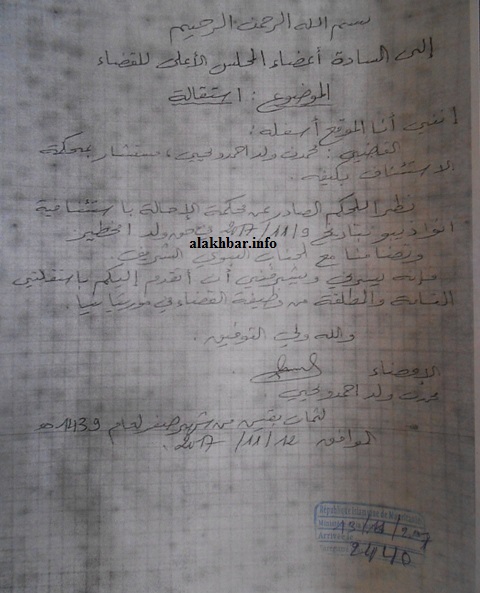 بسم الله الرحمن الرحيم
إلى السادة أعضاء المجلس الأعلى للقضاء
الموضوع: استقالة
إنني أنا الموقع أسفله:
القاضي: محمدن ولد احمدو يحيى، مستشار بمحكمة
الاستئناف بكيفه.
نظرا للحكم الصادر عن محكمة الإحالة باستئنافية
انواذيبو بتاريخ 9/11/2017 ولد امخيطير
وتضامنا مع الجناب النبوي الشريف
فإنه يسرني ويشرفني أن أتقدم إليكم باستقالتي
التامة والمطلقة من وظيفة القضاء في موريتانيا.
والله ولي التوفيق.
الإمضاء
محمدن ولد احمدو يحيى
لثمان بقين من شهر صفر لعام 1439 هـ
الموافق 12/11/2017.
alakhbar.info
République Islamique de
13/11/2017
2440